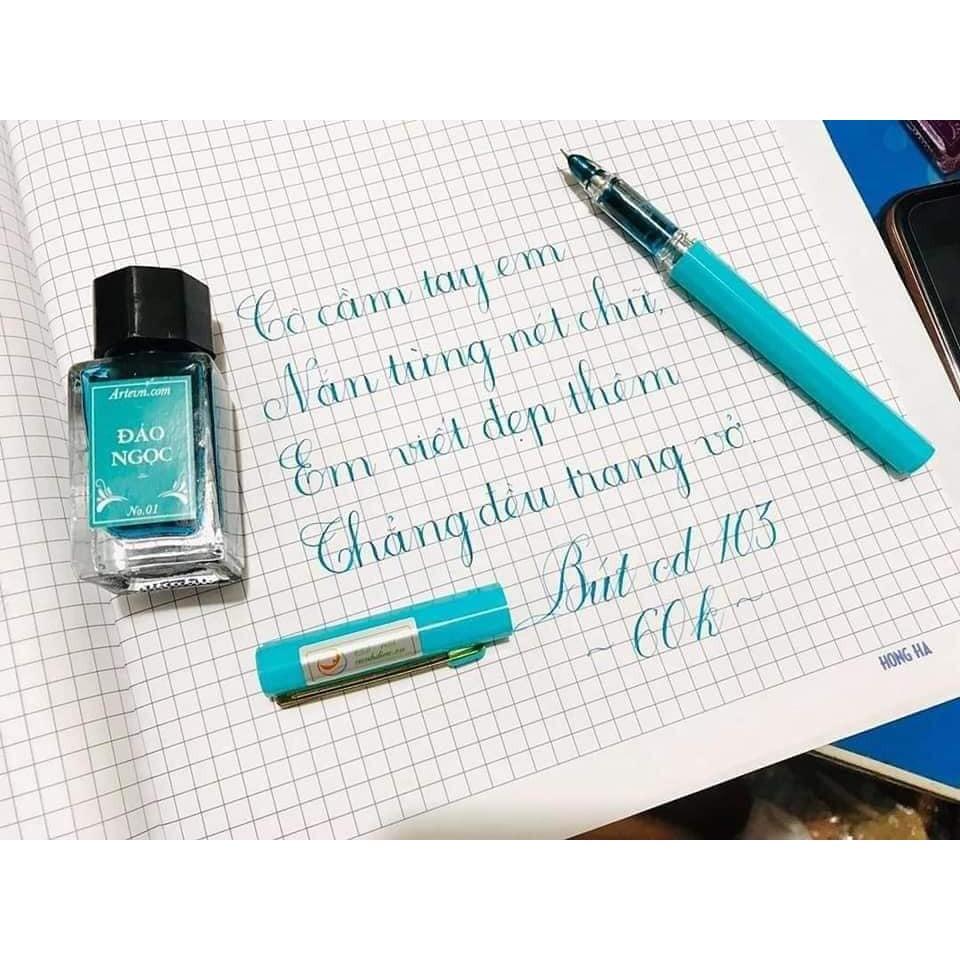 Cô cầm tay em
Nắn từng nét chữ,
Em viết đẹp thêm
Thẳng đều trang vở.
Bút cd 103
~ 60k ~
Artevn.com
ĐẢO
NGỌC
No.01
HONG HA